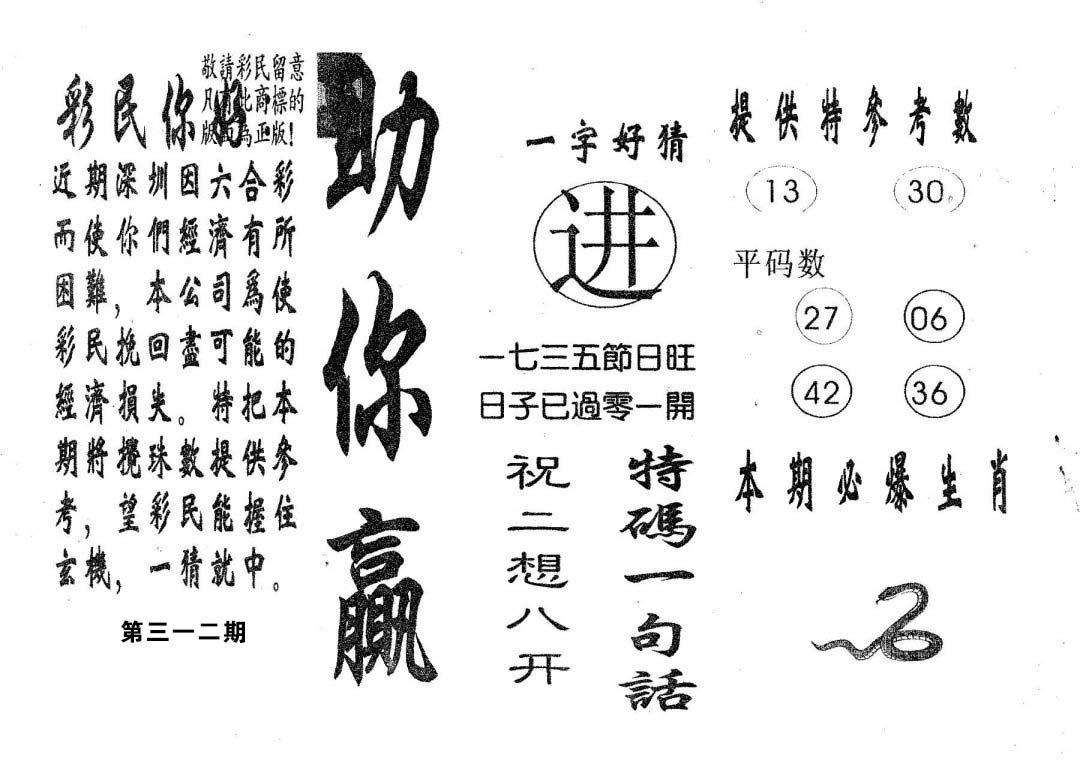 敬請彩民留意
凡有此商標的
版面為正版!
彩民你好
近期深圳因六合彩
而使你們經濟有所
困難，本公司爲使
彩民挽回盡可能的
經濟損失。特把本
期將攪珠數提供參
考，望彩民能握住
玄機，一猜就中。
第三一二期
助你贏
一字好猜
进
一七三五節日旺
日子已過零一開
特碼一句話
祝二想八开
提供特參考數
13 30
平码数
27 06
42 36
本期必爆生肖